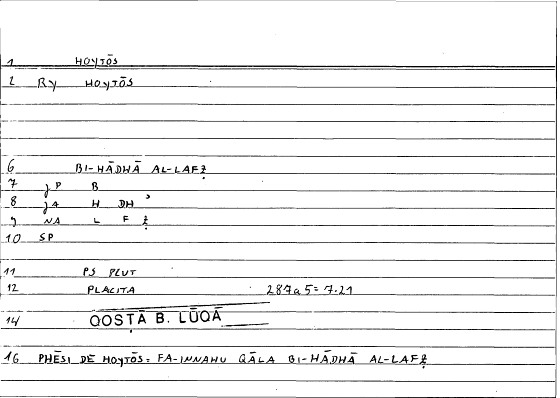 1 HOYTŌS
2 RY HOYTŌS
6 BI-HĀDHĀ AL-LAFẒ
7 JP B
8 JA H DH ʾ
9 NA L F Ẓ
10 SP
11 PS PLUT
12 PLACITA 287a5 = 7.21
14 QOSṬĀ B. LŪQĀ
16 PHĒSI DE HOYTŌS: FA-INNAHU QĀLA BI-HĀDHĀ AL-LAFẒ